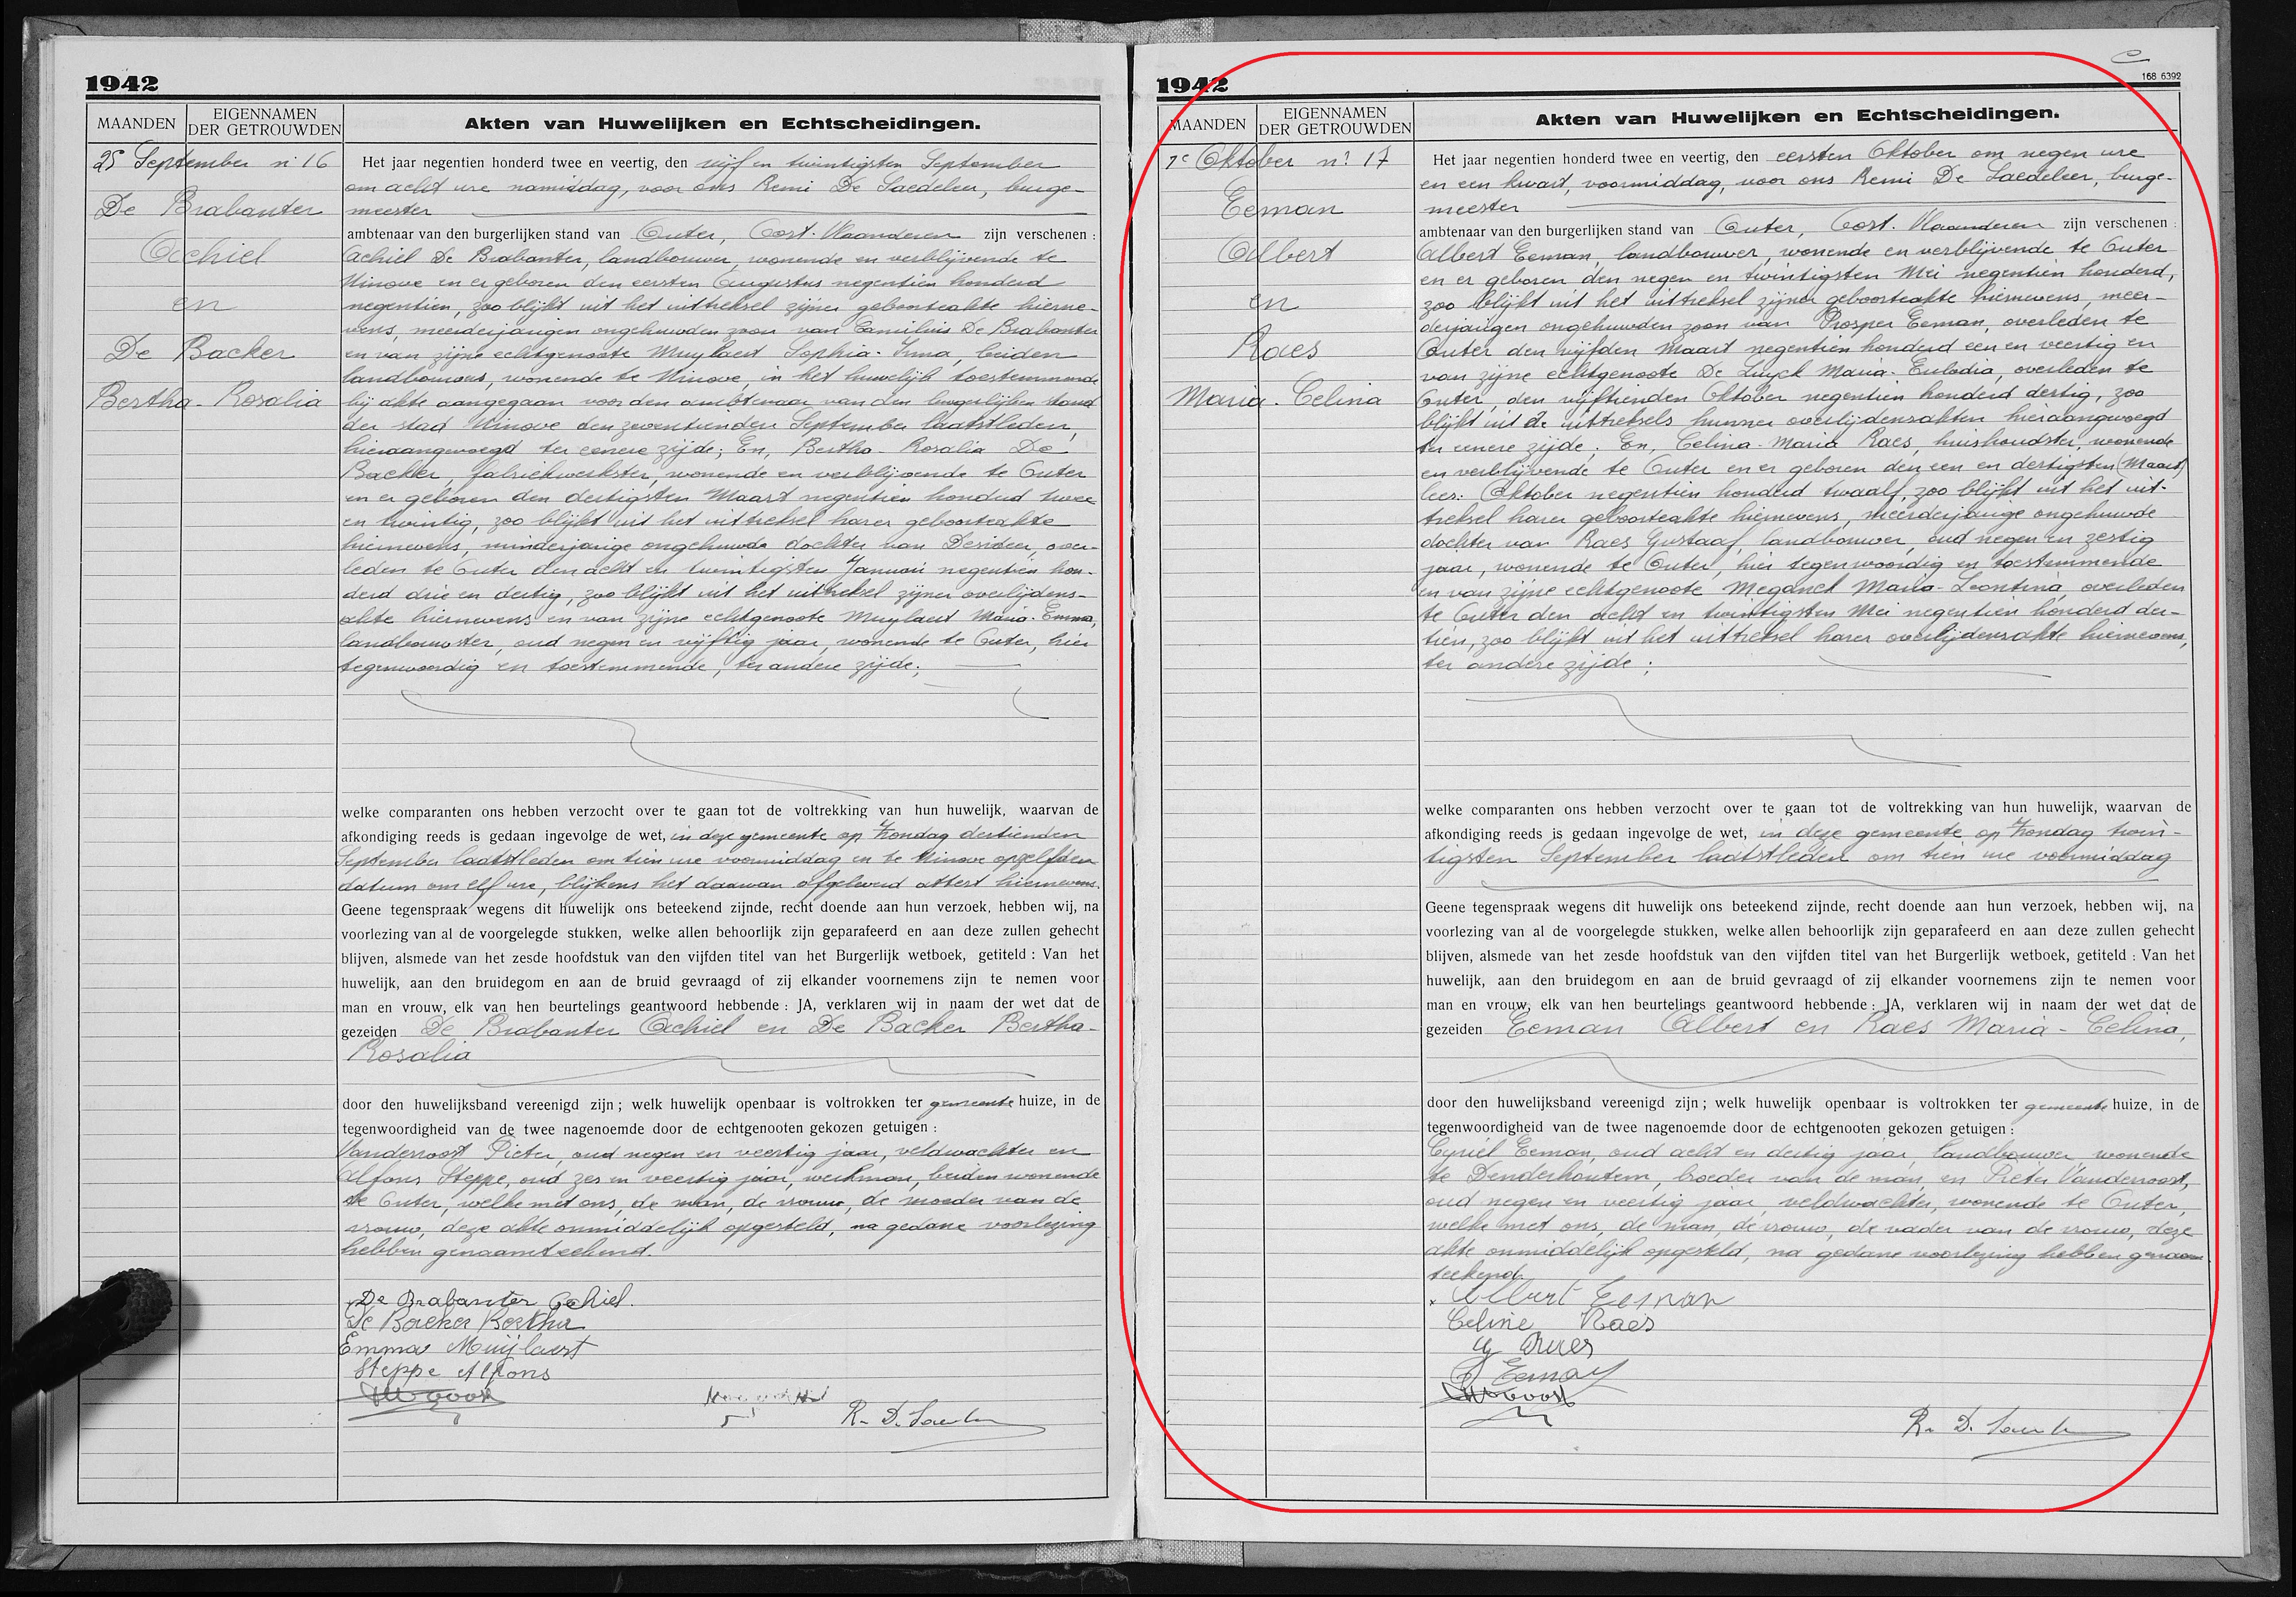 1942
MAANDEN
EIGENNAMEN
DER GETROUWDEN
Akten van Huwelijken en Echtscheidingen.
25 September nr 16
De Brabanter
Achiel
en
De Backer
Bertha-Rosalia
Het jaar negentien honderd twee en veertig, den vijf en twintigsten September
om acht ure namiddag, voor ons Remi De Saedeleer, burge-
meester
ambtenaar van den burgerlijken stand van Outer, Oost-Vlaanderen zijn verschenen :
Achiel De Brabanter, landbouwer, wonende en verblijvende te
Ninove en er geboren den eersten Augustus negentien honderd
negentien, zoo blijkt uit het uittreksel zijner geboorteakte hierne-
vens, meerderjarigen ongehuwden zoon van Camilius De Brabanter
en van zijne echtgenoote Muylaert Sophia-Irma, beiden
landbouwers, wonende te Ninove, in het huwelijk toestemmende
bij akte aangegaan voor den ambtenaar van den burgerlijken stand
der stad Ninove den zeventienden September laatstleden,
hieraangevoegd ter eenere zijde; En, Bertha-Rosalia De
Backer, fabriekwerkster, wonende en verblijvende te Outer
en er geboren den dertigsten Maart negentien honderd twee
en twintig, zoo blijkt uit het uittreksel harer geboorteakte
hiernevens, minderjarige ongehuwde dochter van Desideer, over-
leden te Outer den acht en twintigsten Januari negentien hon-
derd drie en dertig, zoo blijkt uit het uittreksel zijner overlijdens-
akte hiernevens en van zijne echtgenoote Muylaert Maria-Emma,
landbouwster, oud negen en vijftig jaar, wonende te Outer, hier
tegenwoordig en toestemmende, ter andere zijde;
welke comparanten ons hebben verzocht over te gaan tot de voltrekking van hun huwelijk, waarvan de
afkondiging reeds is gedaan ingevolge de wet, in deze gemeente op Zondag dertienden
September laatstleden om tien ure voormiddag en te Ninove opzelfden
datum om elf ure, blijkens het daarvan afgeleverd attest hiernevens.
Geene tegenspraak wegens dit huwelijk ons beteekend zijnde, recht doende aan hun verzoek, hebben wij, na
voorlezing van al de voorgelegde stukken, welke allen behoorlijk zijn geparafeerd en aan deze zullen gehecht
blijven, alsmede van het zesde hoofdstuk van den vijfden titel van het Burgerlijk wetboek, getiteld : Van het
huwelijk, aan den bruidegom en aan de bruid gevraagd of zij elkander voornemens zijn te nemen voor
man en vrouw, elk van hen beurtelings geantwoord hebbende : JA, verklaren wij in naam der wet dat de
gezeiden De Brabanter Achiel en De Backer Bertha-
Rosalia
door den huwelijksband vereenigd zijn ; welk huwelijk openbaar is voltrokken ter gemeente huize, in de
tegenwoordigheid van de twee nagenoemde door de echtgenooten gekozen getuigen :
Vanderroost Pieter, oud negen en veertig jaar, veldwachter en
Alfons Steppe, oud zes en veertig jaar, werkman, beiden wonende
te Outer, welke met ons, de man, de vrouw, de moeder van de
vrouw, deze akte onmiddelijk opgesteld, na gedane voorlezing
hebben genaamteekend.
De Brabanter Achiel.
De Backer Bertha
Emma Muijlaert
Steppe Alfons
R. D. Saedeleer
1942
168 6392
MAANDEN
EIGENNAMEN
DER GETROUWDEN
Akten van Huwelijken en Echtscheidingen.
1e Oktober nr. 17
Eeman
Albert
en
Raes
Maria-Celina
Het jaar negentien honderd twee en veertig, den eersten Oktober om negen ure
en een kwart, voormiddag, voor ons Remi De Saedeleer, burge-
meester
ambtenaar van den burgerlijken stand van Outer, Oost-Vlaanderen zijn verschenen :
Albert Eeman, landbouwer, wonende en verblijvende te Outer
en er geboren den negen en twintigsten Mei negentien honderd,
zoo blijkt uit het uittreksel zijner geboorteakte hiernevens, meer-
derjarigen ongehuwden zoon van Prosper Eeman, overleden te
Outer den vijfden Maart negentien honderd een en veertig en
van zijne echtgenoote De Luyck Maria-Euladia, overleden te
Outer, den vijftienden Oktober negentien honderd dertig, zoo
blijkt uit de uittreksels hunner overlijdensakten hieraangevoegd
ter eenere zijde; En, Celina-Maria Raes, huishoudster, wonende
en verblijvende te Outer en er geboren den een en dertigsten (Maart)
lees: Oktober negentien honderd twaalf, zoo blijkt uit het uit-
treksel harer geboorteakte hiernevens, meerderjarige ongehuwde
dochter van Raes Gustaaf, landbouwer, oud negen en zestig
jaar, wonende te Outer, hier tegenwoordig en toestemmende
en van zijne echtgenoote Meganck Maria-Leontina, overleden
te Outer den acht en twintigsten Mei negentien honderd der-
tien, zoo blijkt uit het uittreksel harer overlijdensakte hiernevens,
ter andere zijde;
welke comparanten ons hebben verzocht over te gaan tot de voltrekking van hun huwelijk, waarvan de
afkondiging reeds is gedaan ingevolge de wet, in deze gemeente op Zondag twin-
tigsten September laatstleden om tien ure voormiddag
Geene tegenspraak wegens dit huwelijk ons beteekend zijnde, recht doende aan hun verzoek, hebben wij, na
voorlezing van al de voorgelegde stukken, welke allen behoorlijk zijn geparafeerd en aan deze zullen gehecht
blijven, alsmede van het zesde hoofdstuk van den vijfden titel van het Burgerlijk wetboek, getiteld : Van het
huwelijk, aan den bruidegom en aan de bruid gevraagd of zij elkander voornemens zijn te nemen voor
man en vrouw, elk van hen beurtelings geantwoord hebbende : JA, verklaren wij in naam der wet dat de
gezeiden Eeman Albert en Raes Maria-Celina,
door den huwelijksband vereenigd zijn ; welk huwelijk openbaar is voltrokken ter gemeente huize, in de
tegenwoordigheid van de twee nagenoemde door de echtgenooten gekozen getuigen :
Cyriel Eeman, oud acht en dertig jaar, landbouwer, wonende
te Denderhoutem, broeder van de man, en Pieter Vanderroost,
oud negen en veertig jaar, veldwachter, wonende te Outer,
welke met ons, de man, de vrouw, de vader van de vrouw, deze
akte onmiddelijk opgesteld, na gedane voorlezing hebben genaam-
teekend.
Albert Eeman
Celine Raes
G Raes
C Eeman
R. D. Saedeleer